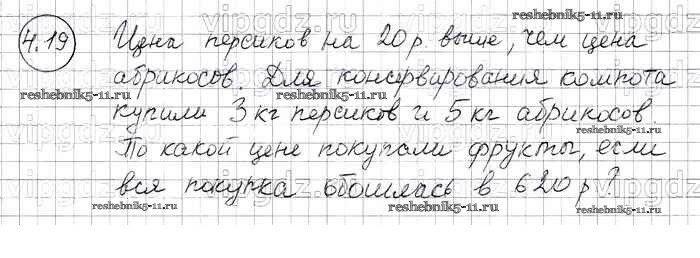 4.19 Цена персиков на 20 р. выше, чем цена
абрикосов. Для консервирования компота
купили 3 кг персиков и 5 кг абрикосов.
По какой цене покупали фрукты, если
вся покупка обошлась в 620 р?
reshebnik5-11.ru
reshebnik5-11.ru
reshebnik5-11.ru
reshebnik5-11.ru
reshebnik5-11.ru
reshebnik5-11.ru
vipgdz
vipgdz
vipgdz